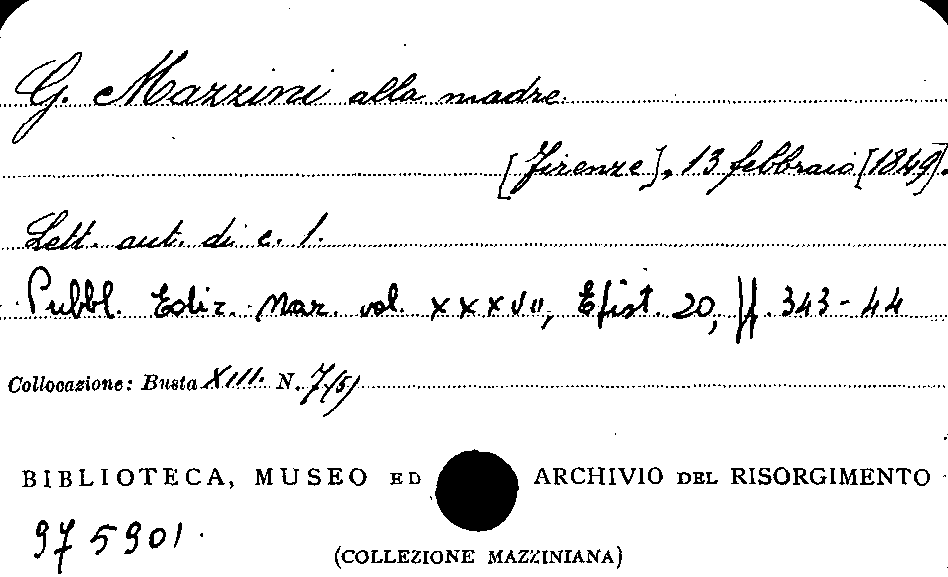 G. Mazzini alla madre.
[Firenze], 13 febbraio [1849].
Lett. aut. di c. 1.
Pubbl. Ediz. Naz. vol. XXXVII, Epist. 20, pp. 343-44
Collocazione: Busta XIII. N. 7(5)
BIBLIOTECA, MUSEO ED ARCHIVIO DEL RISORGIMENTO
975901.
(COLLEZIONE MAZZINIANA)